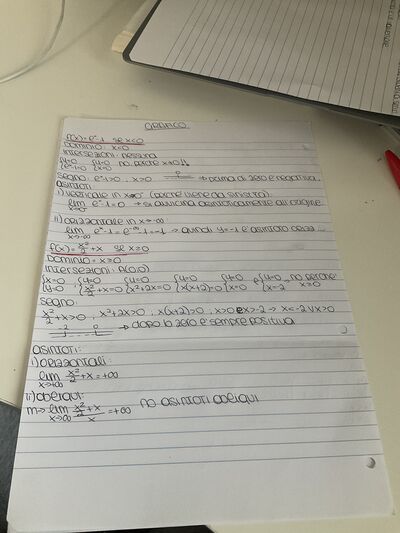 GRAFICO
f(x)=eˣ-1 se x<0
DOMINIO: x<0
INTERSEZIONI: nessuna
{y=0 {y=0 no perché x≠0
{eˣ-1=0 {x=0
SEGNO: eˣ-1>0, x>0 → prima di zero è negativa
ASINTOTI
i) verticale in x→0⁻ (perché viene da sinistra)
lim x→0⁻ eˣ-1=0 → si avvicina asintoticamente all'origine
ii) orizzontale in x→-∞
lim x→-∞ eˣ-1=e^-∞-1=-1 → quindi y=-1 è asintoto orizz.
f(x)=x²/2+x se x≥0
DOMINIO=x≥0
Intersezioni: A(0,0)
{x=0 {y=0 {y=0 {y=0 {y=0 e {y=0 no perché
{y=0 {x²/2+x=0 {x²+2x=0 {x(x+2)=0 {x=0 {x=-2 x≥0
SEGNO:
x²/2+x>0, x²+2x>0, x(x+2)>0, x>0 e x>-2 → x<-2 V x>0
-2 0 → dopo lo zero è sempre positiva
ASINTOTI:
i) orizzontali:
lim x→+∞ x²/2+x=+∞
ii) obliqui:
m→ lim x→∞ (x²/2+x)/x=+∞ no asintoti obliqui